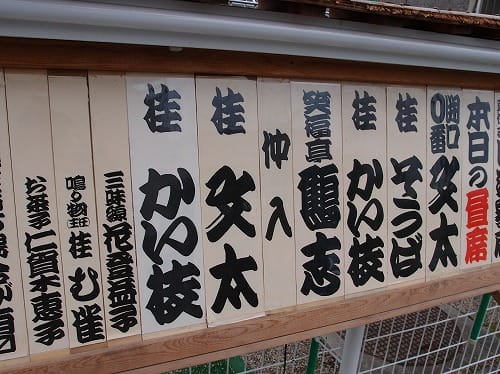 本日の昼席
開口〇番 文太
桂 そうば
桂 かい枝
笑福亭 鶴志
仲入
桂 文太
桂 かい枝
三味線 花登益子
鳴り物 桂む雀
お茶子 仁賀木恵子